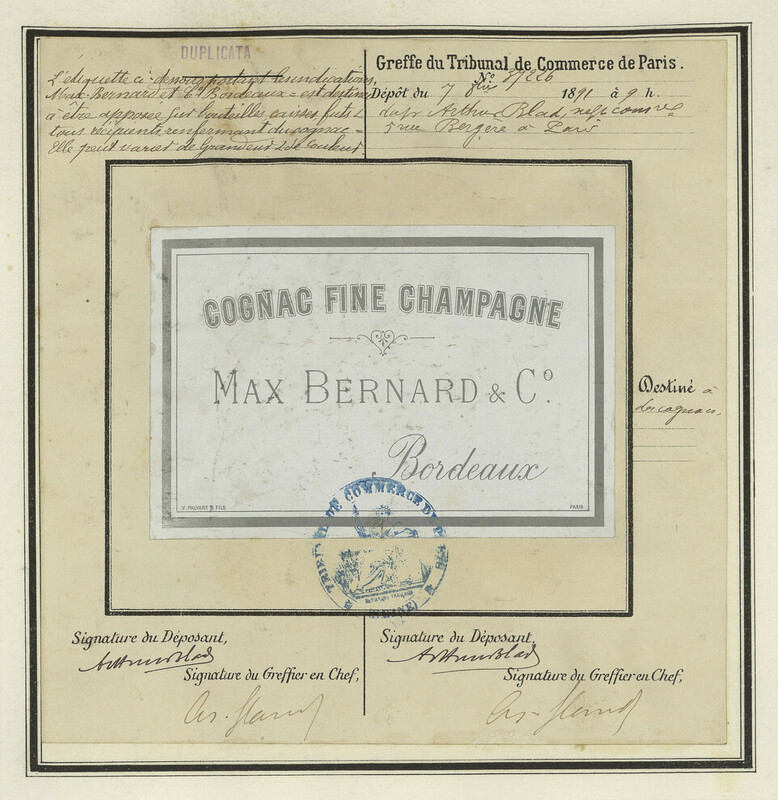 DUPLICATA
L'étiquette ci-dessous portant les indications,
Max-Bernard et Cº Bordeaux = est destinée
à être apposée sur bouteilles caisses, futs &
tous récipients, renfermant du cognac =
Elle peut varier de Grandeur & de Couleur.
Greffe du Tribunal de Commerce de Paris.
Nº 37226
Dépôt du 7 8bre 1891 à 2 h.
Arthur Blad, négt
5 rue Bergère à Paris
COGNAC FINE CHAMPAGNE
MAX BERNARD & Cº.
Bordeaux
V. PALYART & FILS
PARIS
Destiné à
des cognacs.
TRIBUNAL DE COMMERCE DE PARIS
(SEINE)
Signature du Déposant,
Arthur Blad
Signature du Greffier en Chef,
Signature du Déposant,
Arthur Blad
Signature du Greffier en Chef,